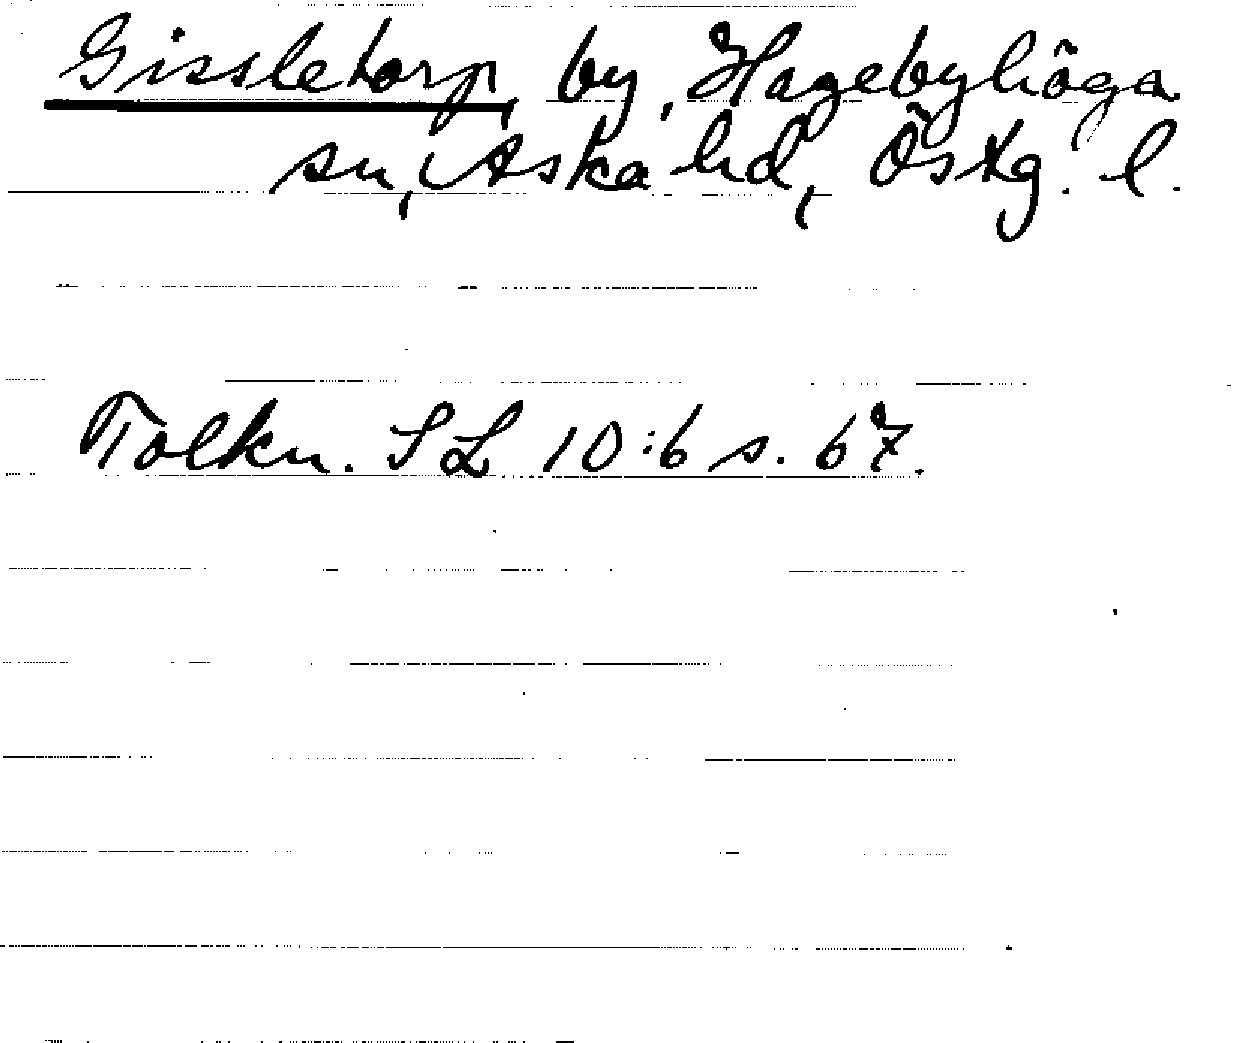 Gissletorp, by, Hagebyhöga
sn, Aska hd, Östg. l.
Tolkn. SL 10:6 s. 67.